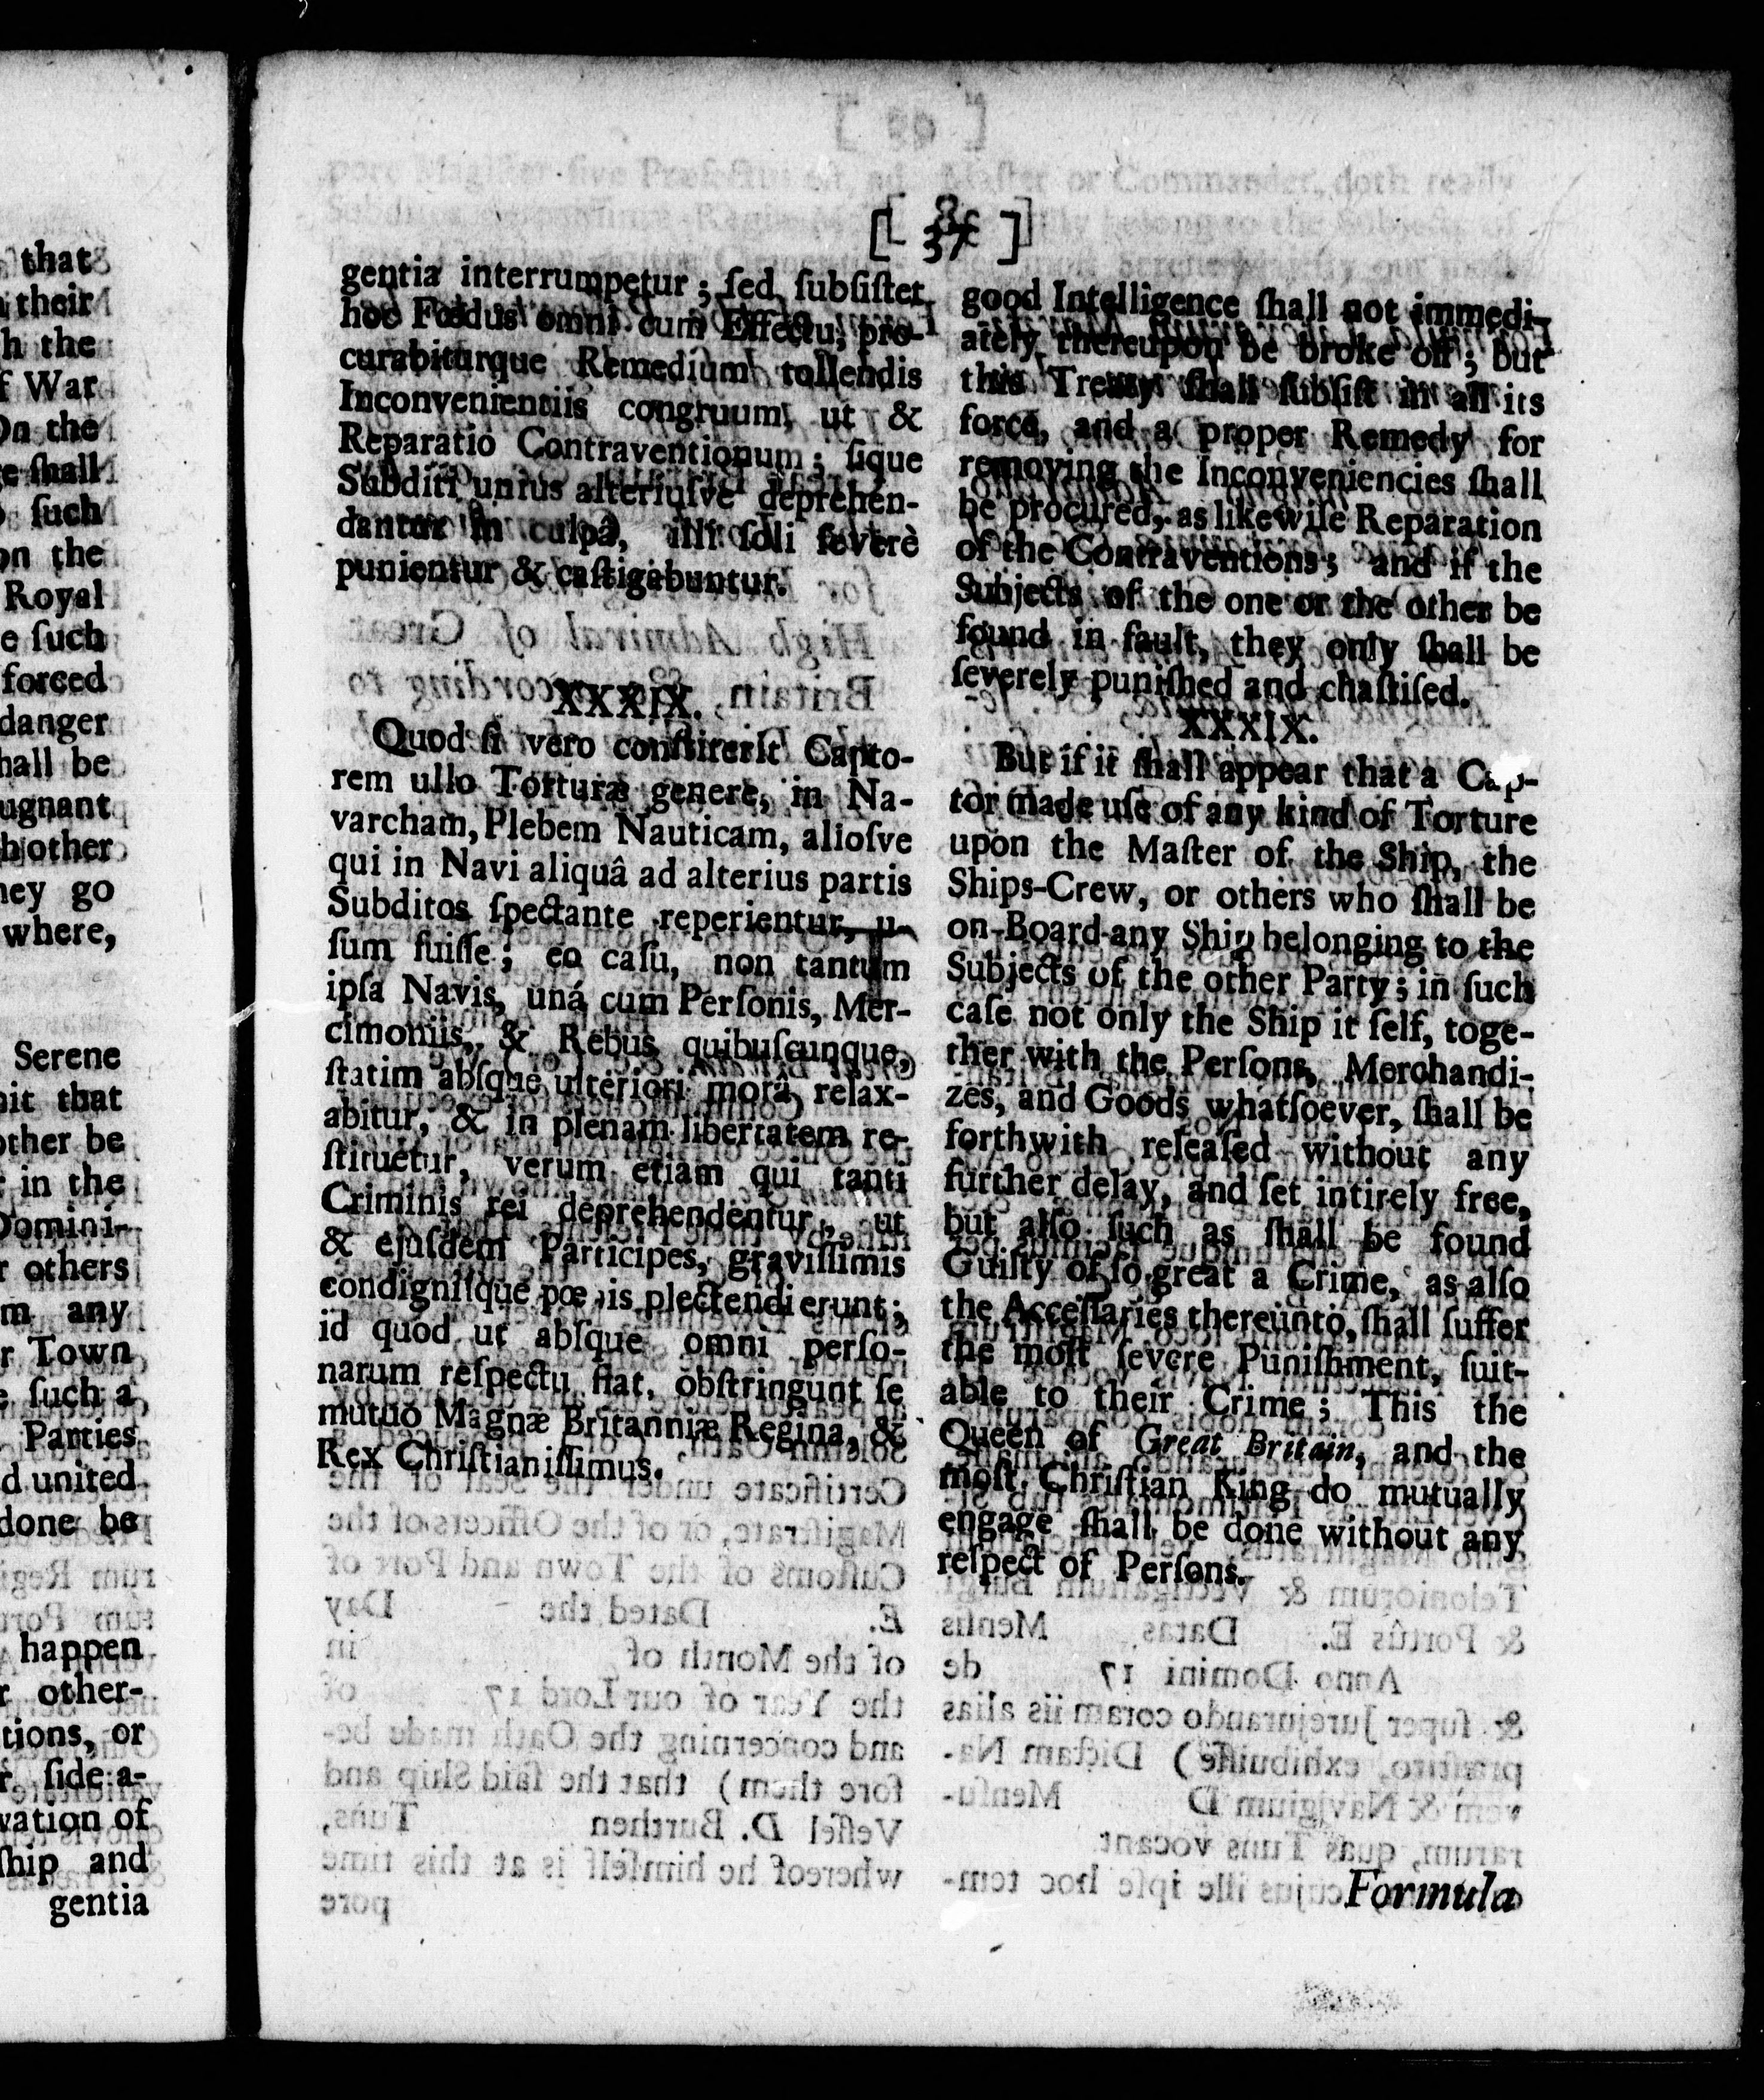 that
their
h the
f War
On the
e ſhall
ſuch
on the
Royal
e ſuch
forced
danger
hall be
ugnant
h other
hey go
where,
Serene
it that
other be
in the
Domini-
r others
m any
r Town
e ſuch a
Parties
d united
done be
happen
r other-
tions, or
r ſide a-
vation of
ſhip and
gentia
[ 37 ]
gentia interrumpetur; ſed ſubſiſtet
hoc Fœdus omni cum Effectu, pro-
curabiturque Remedium tollendis
Inconvenientiis congruum, ut &
Reparatio Contraventionum; ſique
Subditi unius alteriuſve deprehen-
dantur in culpâ, illi ſoli ſeverè
punientur & caſtigabuntur.
XXXIX.
Quod ſi vero conſtiterit Capto-
rem ullo Torturæ genere, in Na-
varcham, Plebem Nauticam, alioſve
qui in Navi aliquâ ad alterius partis
Subditos ſpectante reperientur, u-
ſum fuiſſe; eo caſu, non tantum
ipſa Navis, uná cum Perſonis, Mer-
cimoniis, & Rebus quibuſcunque,
ſtatim abſque ulteriori morâ relax-
abitur, & in plenam libertatem re-
ſtituetur, verum etiam qui tanti
Criminis rei deprehendentur, ut
& ejuſdem Participes, graviſſimis
condigniſque pœ is plectendi erunt;
id quod ut abſque omni perſo-
narum reſpectu fiat, obſtringunt ſe
mutuo Magnæ Britanniæ Regina, &
Rex Chriſtianiſſimus.
good Intelligence ſhall not immedi-
ately thereupon be broke off; but
this Treaty ſhall ſubſiſt in all its
force, and a proper Remedy for
removing the Inconveniencies ſhall
be procured, as likewiſe Reparation
of the Contraventions; and if the
Subjects of the one or the other be
found in fault, they only ſhall be
ſeverely puniſhed and chaſtiſed.
XXXIX.
But if it ſhall appear that a Cap-
tor made uſe of any kind of Torture
upon the Maſter of the Ship, the
Ships-Crew, or others who ſhall be
on-Board any Ship belonging to the
Subjects of the other Party; in ſuch
caſe not only the Ship it ſelf, toge-
ther with the Perſons, Merchandi-
zes, and Goods whatſoever, ſhall be
forthwith releaſed without any
further delay, and ſet intirely free,
but alſo ſuch as ſhall be found
Guilty of ſo great a Crime, as alſo
the Acceſſaries thereunto, ſhall ſuffer
the moſt ſevere Puniſhment, ſuit-
able to their Crime; This the
Queen of Great Britain, and the
moſt Chriſtian King do mutually
engage ſhall be done without any
reſpect of Perſons.
Formula